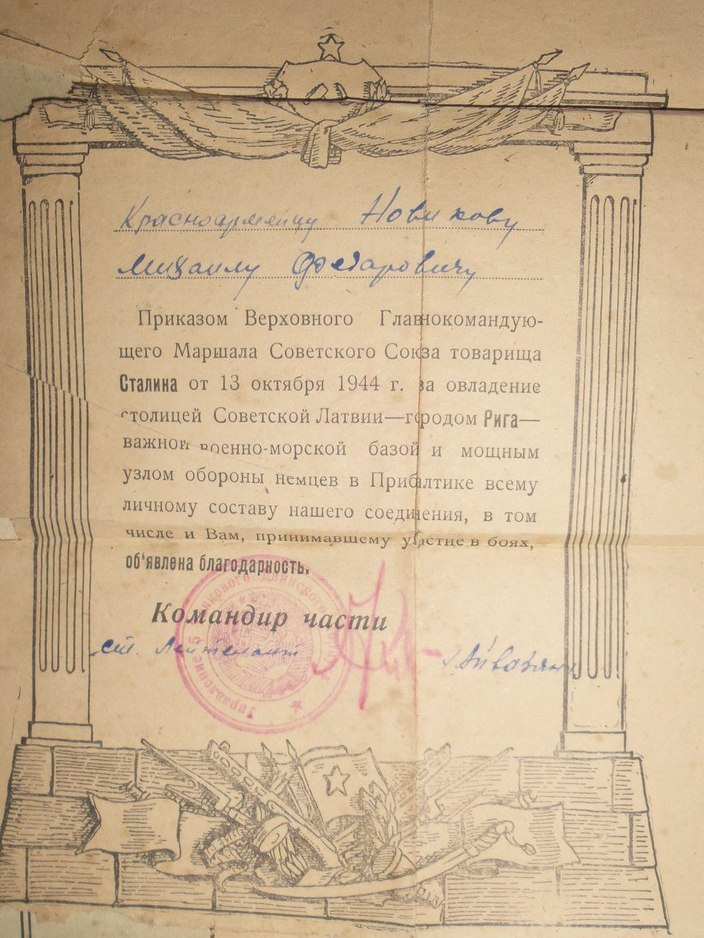 Красноармейцу Новикову
Михаилу Федаровичу
Приказом Верховного Главнокомандую-
щего Маршала Советского Союза товарища
Сталина от 13 октября 1944 г. за овладение
столицей Советской Латвии—городом Рига—
важной военно-морской базой и мощным
узлом обороны немцев в Прибалтике всему
личному составу нашего соединения, в том
числе и Вам, принимавшему участие в боях,
об'явлена благодарность.
Командир части
ст. Лейтенант
Управление